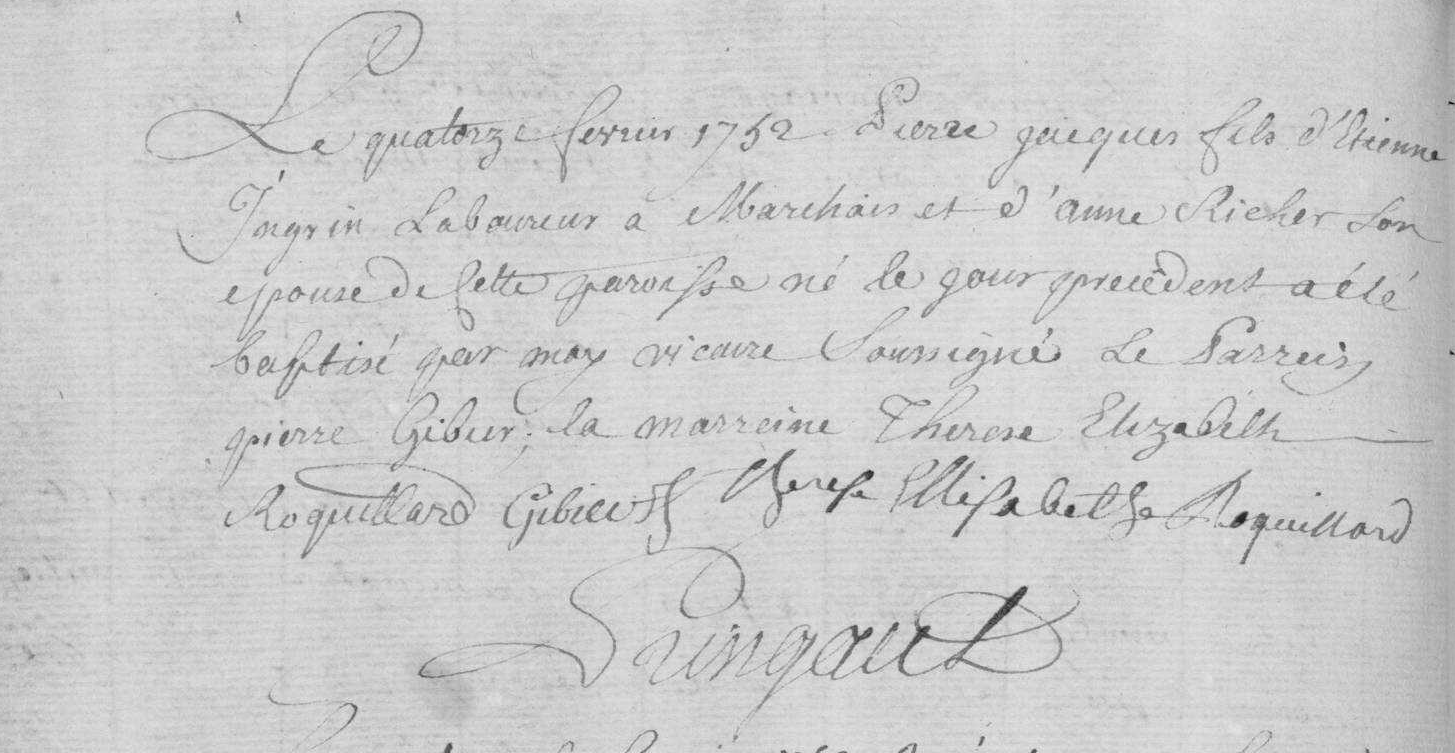 Le quatorze fevrier 1752 Pierre jacques fils d'Etienne
Ingrin Laboureur a Marchais et d'anne Richer Son
epouse de Cette paroisse né le jour precedent a été
baptisé par moy vicaire Soussigné Le Parrein
pierre Gibier ; la marreine Therese Elizabeth
Roquillard Gibier Therese Ellisabethe Roquillard